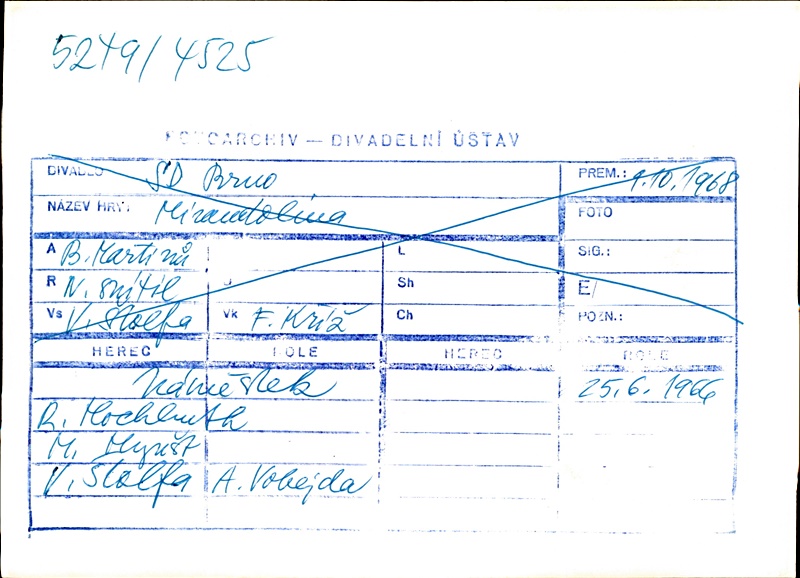 5249/4525
FOTOARCHIV — DIVADELNÍ ÚSTAV
DIVADLO SD Brno PREM.: 1.10.1968
NÁZEV HRY: Mirandolina FOTO
A B. Martinů L SIG.:
R N. Snítil J Sh E/
Vs V. Štolfa Vk F. Kříž Ch POZN.:
HEREC ROLE HEREC ROLE
Náměstek 25.6.1966
R. Hochhuth
M. Hynšt
V. Štolfa A. Vobejda